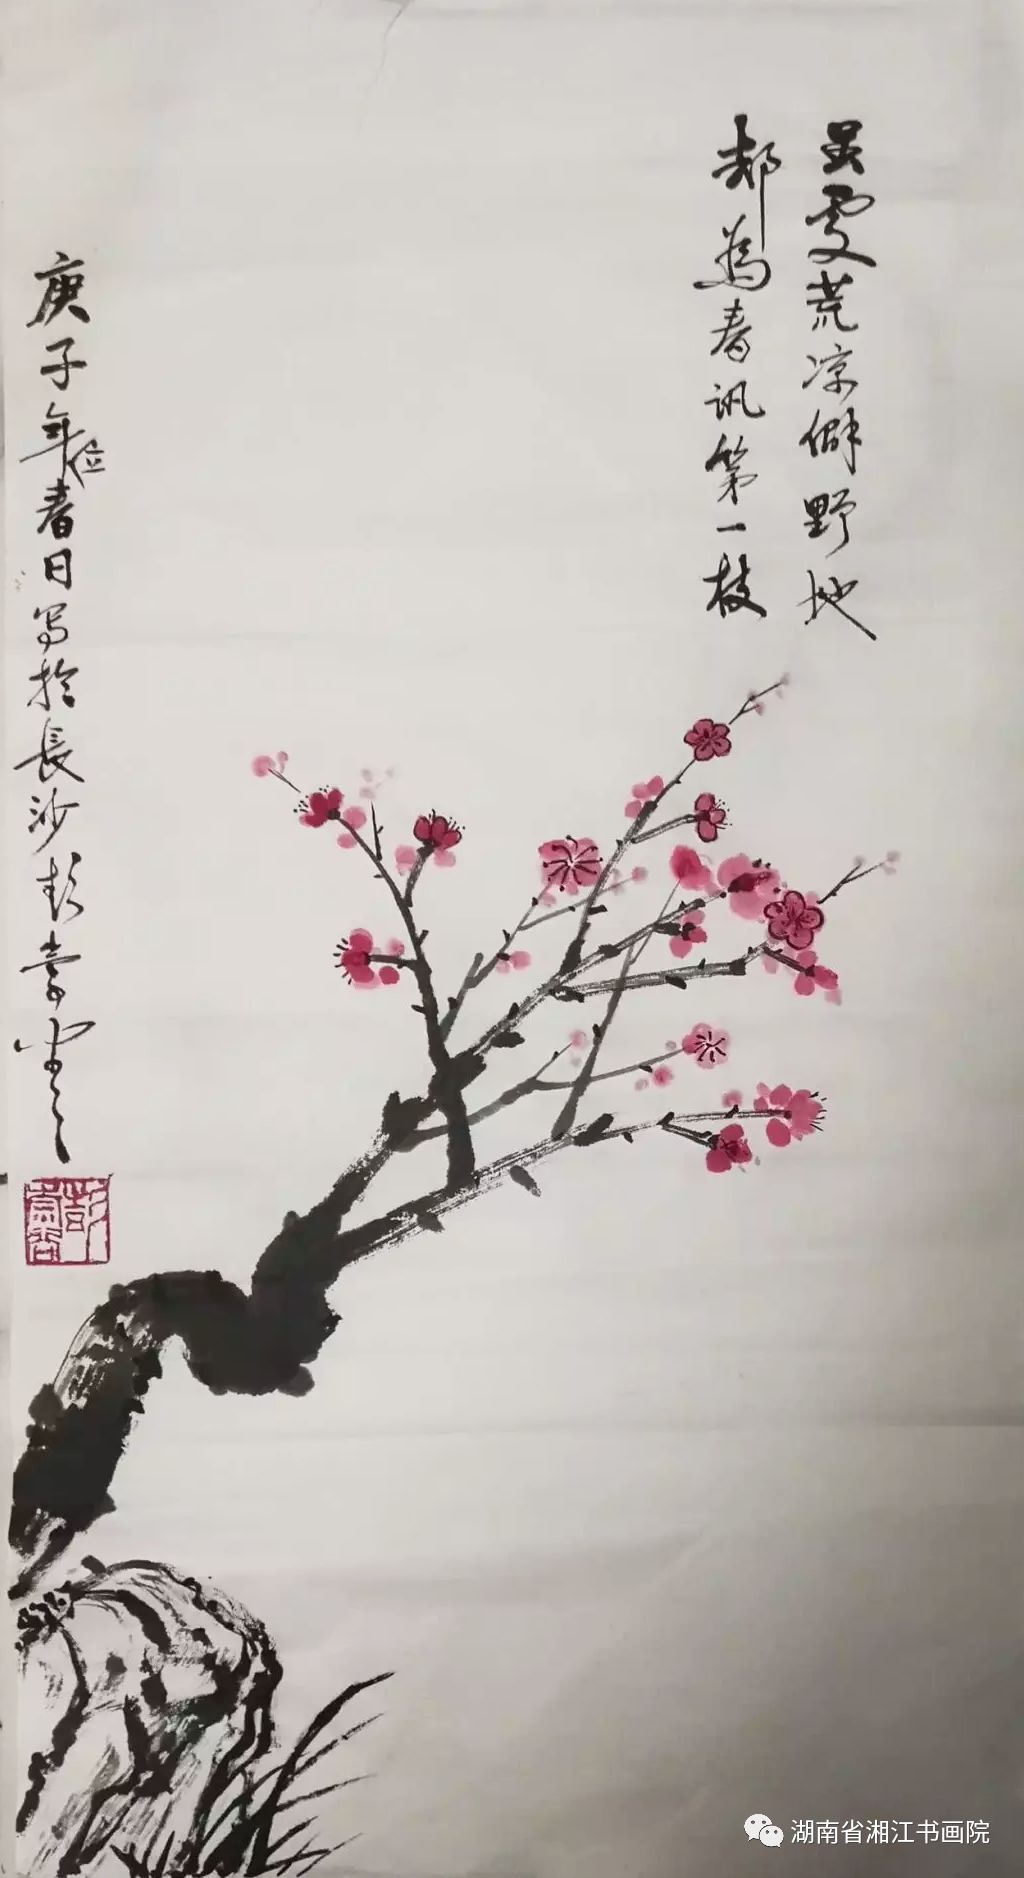 虽处荒凉僻野地
却为春讯第一枝
庚子年位春日写於長沙彭常
湖南省湘江书画院